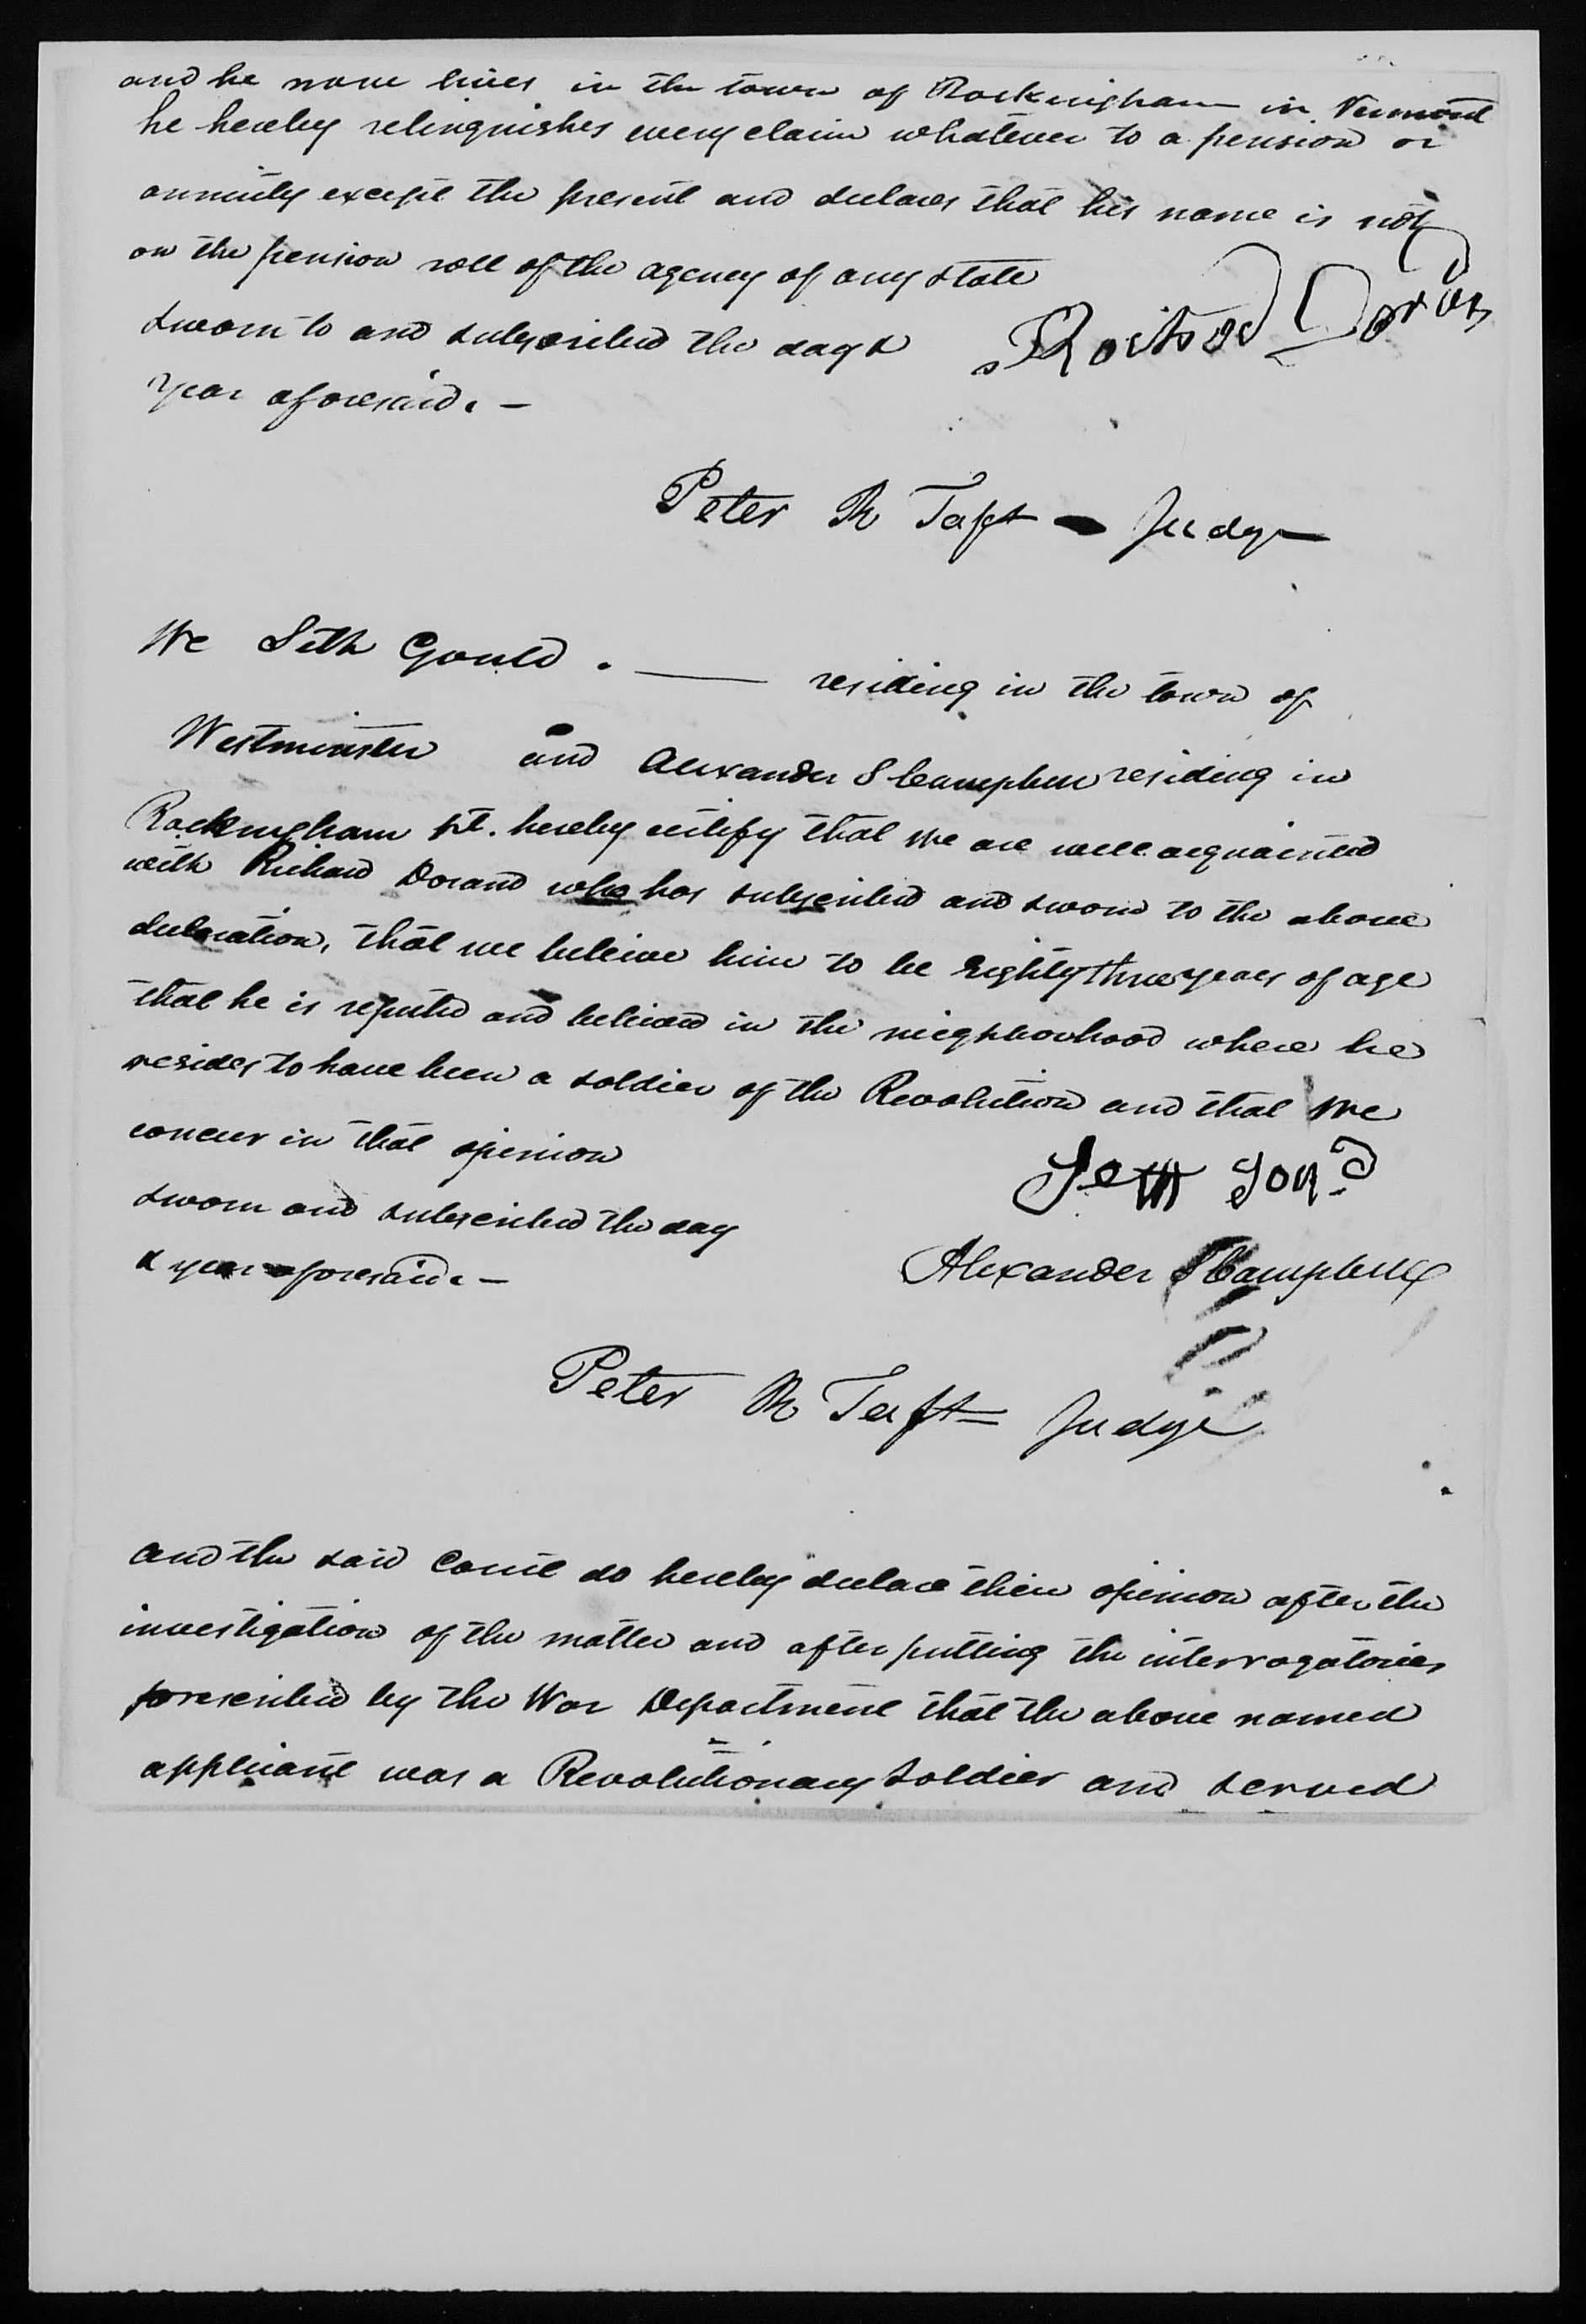 and he now lives in the town of Rockingham in Vermont
he hereby relinquishes every claim whatever to a pension or
annuity except the present and declares that his name is not
on the pension roll of the agency of any state
sworn to and subscribed the day &
year aforesaid. —
Richard Doran
Peter R Taft - Judge
We Seth Gould . — residing in the town of
Westminster and Alexander S Campbell residing in
Rockingham Vt. hereby certify that we are well acquainted
with Richard Dorand who has subscribed and sworn to the above
declaration, that we beleive him to be Eighty three years of age
that he is reputed and believed in the nieghborhood where he
resides to have been a soldier of the Revolution and that we
concur in that opinion
sworn and subscribed the day
& year aforesaid. —
Seth Gould
Alexander S Campbell
Peter R Taft = Judge
and the said Court do hereby declare their opinion after the
investigation of the matter and after putting the interrogatories
prescribed by the War Department that the above named
applicant was a Revolutionary soldier and served